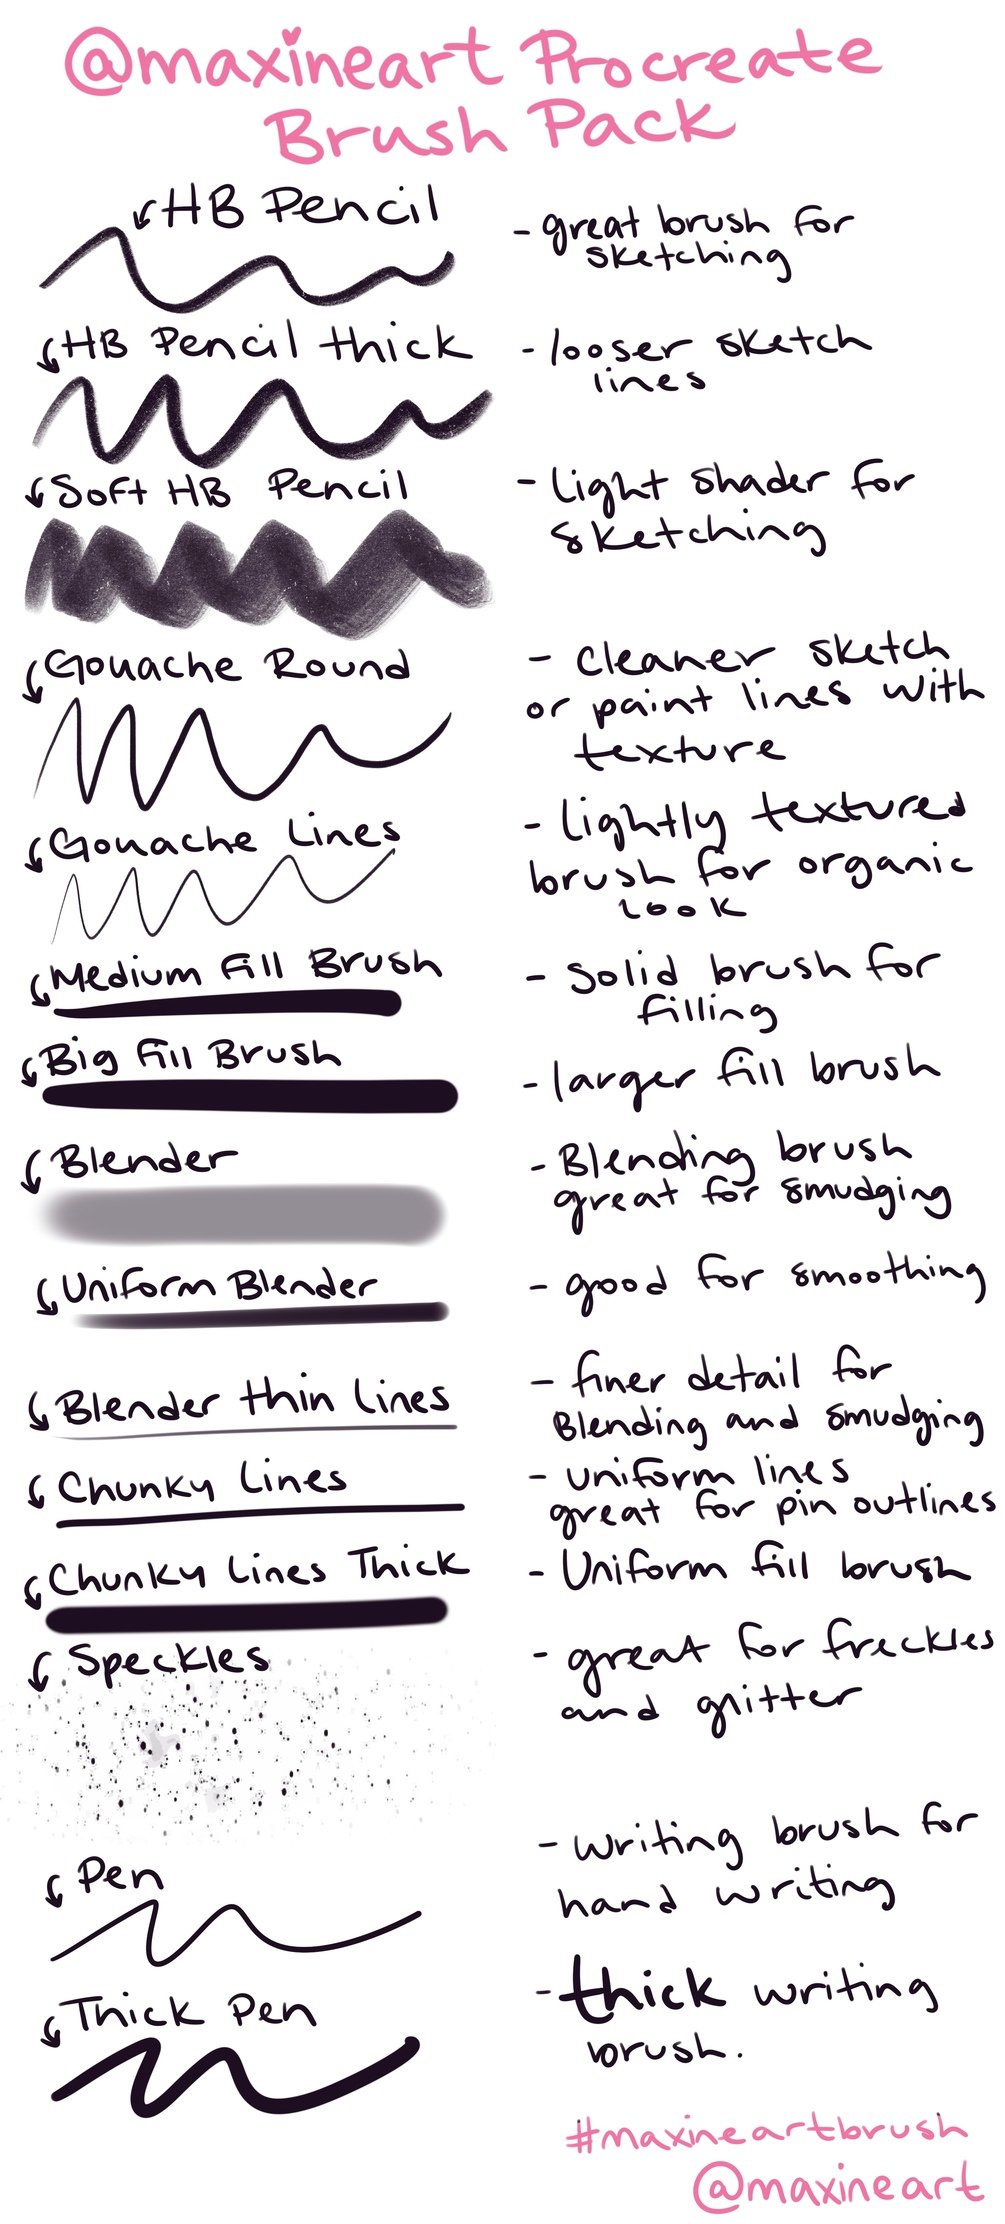 @maxineart Procreate
Brush Pack
HB Pencil
- great brush for
sketching
HB Pencil thick
- looser sketch
lines
Soft HB Pencil
- light shader for
sketching
Gouache Round
- cleaner sketch
or paint lines with
texture
Gouache Lines
- lightly textured
brush for organic
look
Medium Fill Brush
- Solid brush for
filling
Big Fill Brush
- larger fill brush
Blender
- Blending brush
great for smudging
Uniform Blender
- good for smoothing
Blender thin lines
- finer detail for
Blending and smudging
Chunky Lines
- uniform lines
great for pin outlines
Chunky Lines Thick
- Uniform fill brush
Speckles
- great for freckles
and glitter
Pen
- writing brush for
hand writing
Thick Pen
- thick writing
brush.
#maxineartbrush
@maxineart